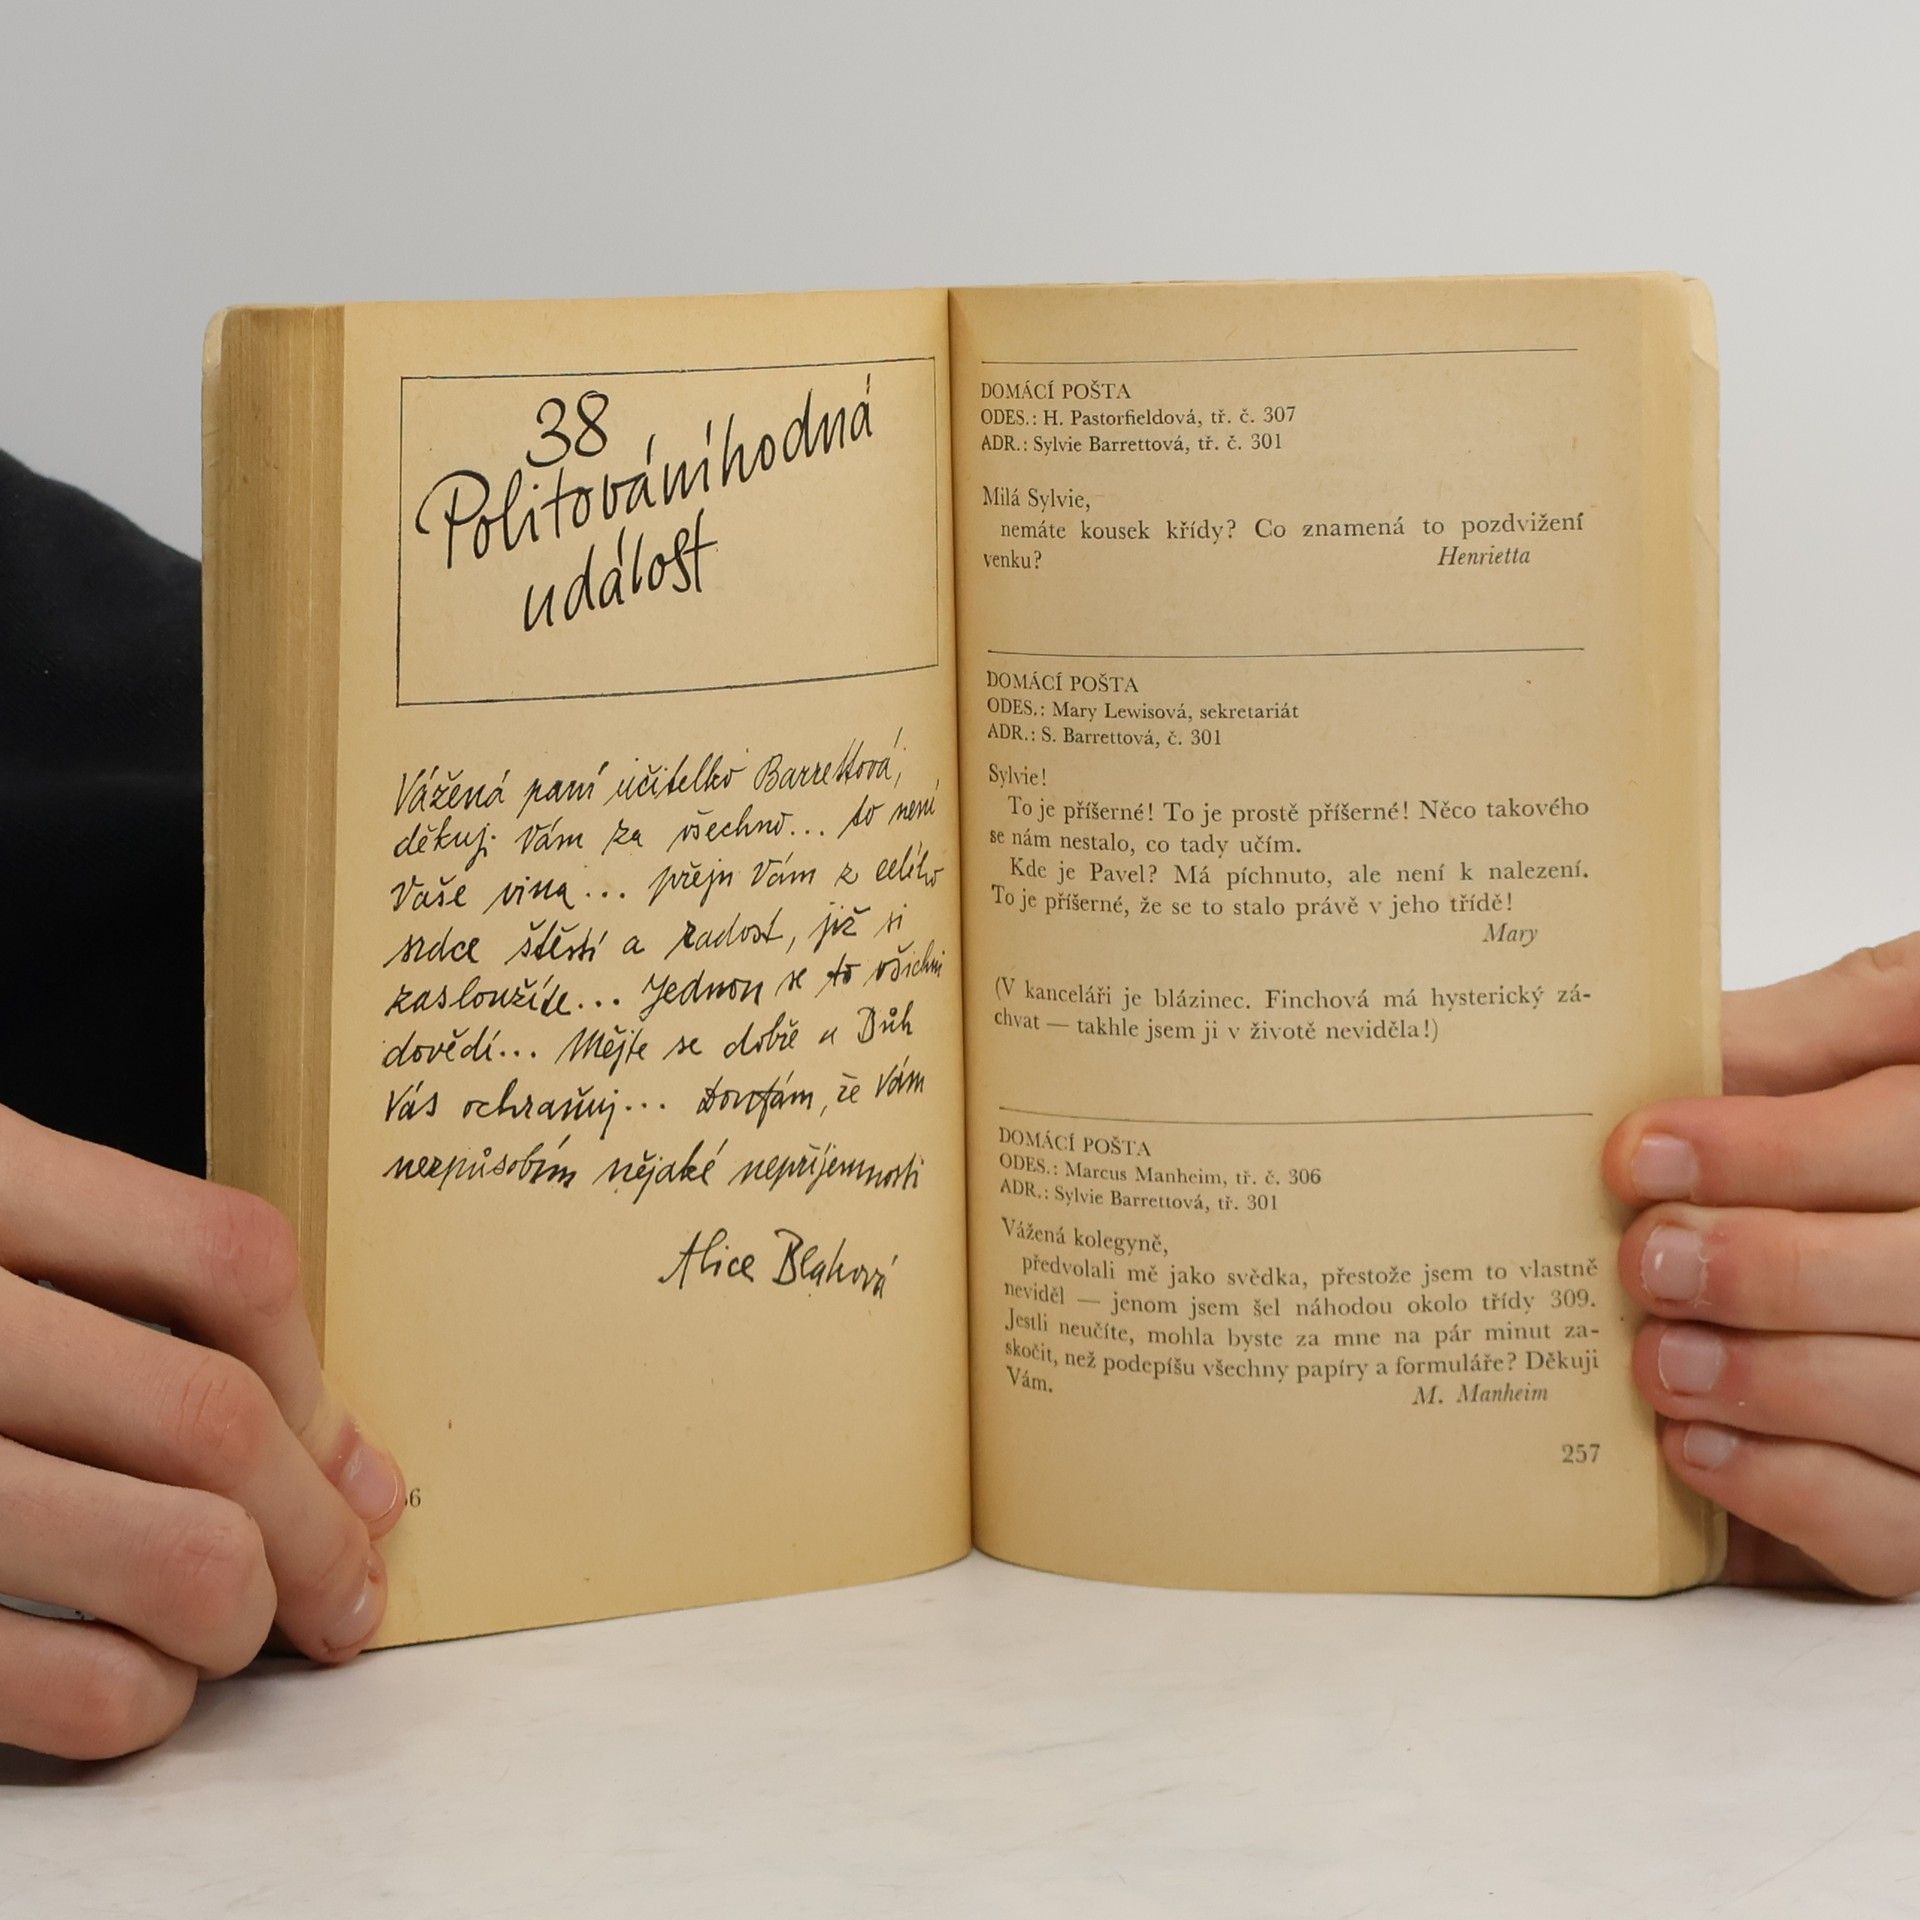 38
Politováníhodná
událost
Vážená paní učitelko Barrettová,
děkuji Vám za všechno... to není
Vaše vina... přeju Vám z celého
srdce štěstí a radost, jíž si
zasloužíte... Jednou se to všichni
dovědí... Mějte se dobře a Bůh
Vás ochraňuj... Doufám, že Vám
nezpůsobím nějaké nepříjemnosti
Alice Blahová
6
DOMÁCÍ POŠTA
ODES.: H. Pastorfieldová, tř. č. 307
ADR.: Sylvie Barrettová, tř. č. 301
Milá Sylvie,
nemáte kousek křídy? Co znamená to pozdvižení
venku? Henrietta
DOMÁCÍ POŠTA
ODES.: Mary Lewisová, sekretariát
ADR.: S. Barrettová, č. 301
Sylvie!
To je příšerné! To je prostě příšerné! Něco takového
se nám nestalo, co tady učím.
Kde je Pavel? Má píchnuto, ale není k nalezení.
To je příšerné, že se to stalo právě v jeho třídě!
Mary
(V kanceláři je blázinec. Finchová má hysterický zá-
chvat — takhle jsem ji v životě neviděla!)
DOMÁCÍ POŠTA
ODES.: Marcus Manheim, tř. č. 306
ADR.: Sylvie Barrettová, tř. 301
Vážená kolegyně,
předvolali mě jako svědka, přestože jsem to vlastně
neviděl — jenom jsem šel náhodou okolo třídy 309.
Jestli neučíte, mohla byste za mne na pár minut za-
skočit, než podepíšu všechny papíry a formuláře? Děkuji
Vám. M. Manheim
257